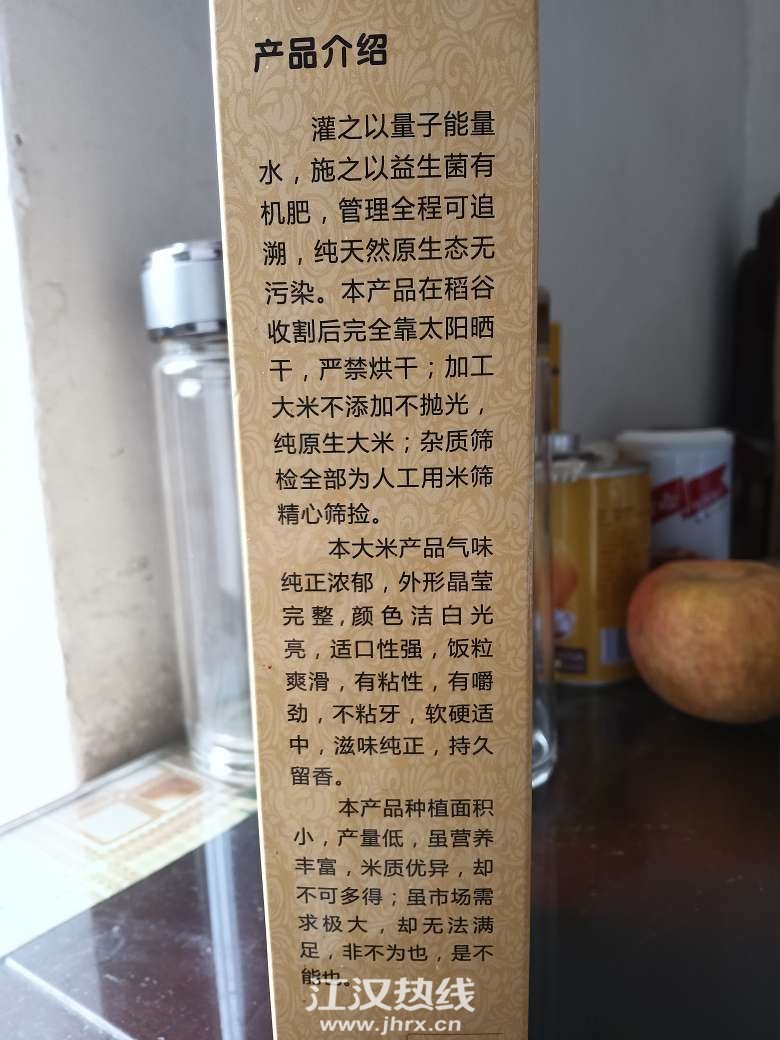 产品介绍
灌之以量子能量
水，施之以益生菌有
机肥，管理全程可追
溯，纯天然原生态无
污染。本产品在稻谷
收割后完全靠太阳晒
干，严禁烘干；加工
大米不添加不抛光，
纯原生大米；杂质筛
检全部为人工用米筛
精心筛捡。
本大米产品气味
纯正浓郁，外形晶莹
完整,颜色洁白光
亮，适口性强，饭粒
爽滑，有粘性，有嚼
劲，不粘牙，软硬适
中，滋味纯正，持久
留香。
本产品种植面积
小，产量低，虽营养
丰富，米质优异，却
不可多得；虽市场需
求极大，却无法满
足，非不为也，是不
能也。
江汉热线
www.jhrx.cn